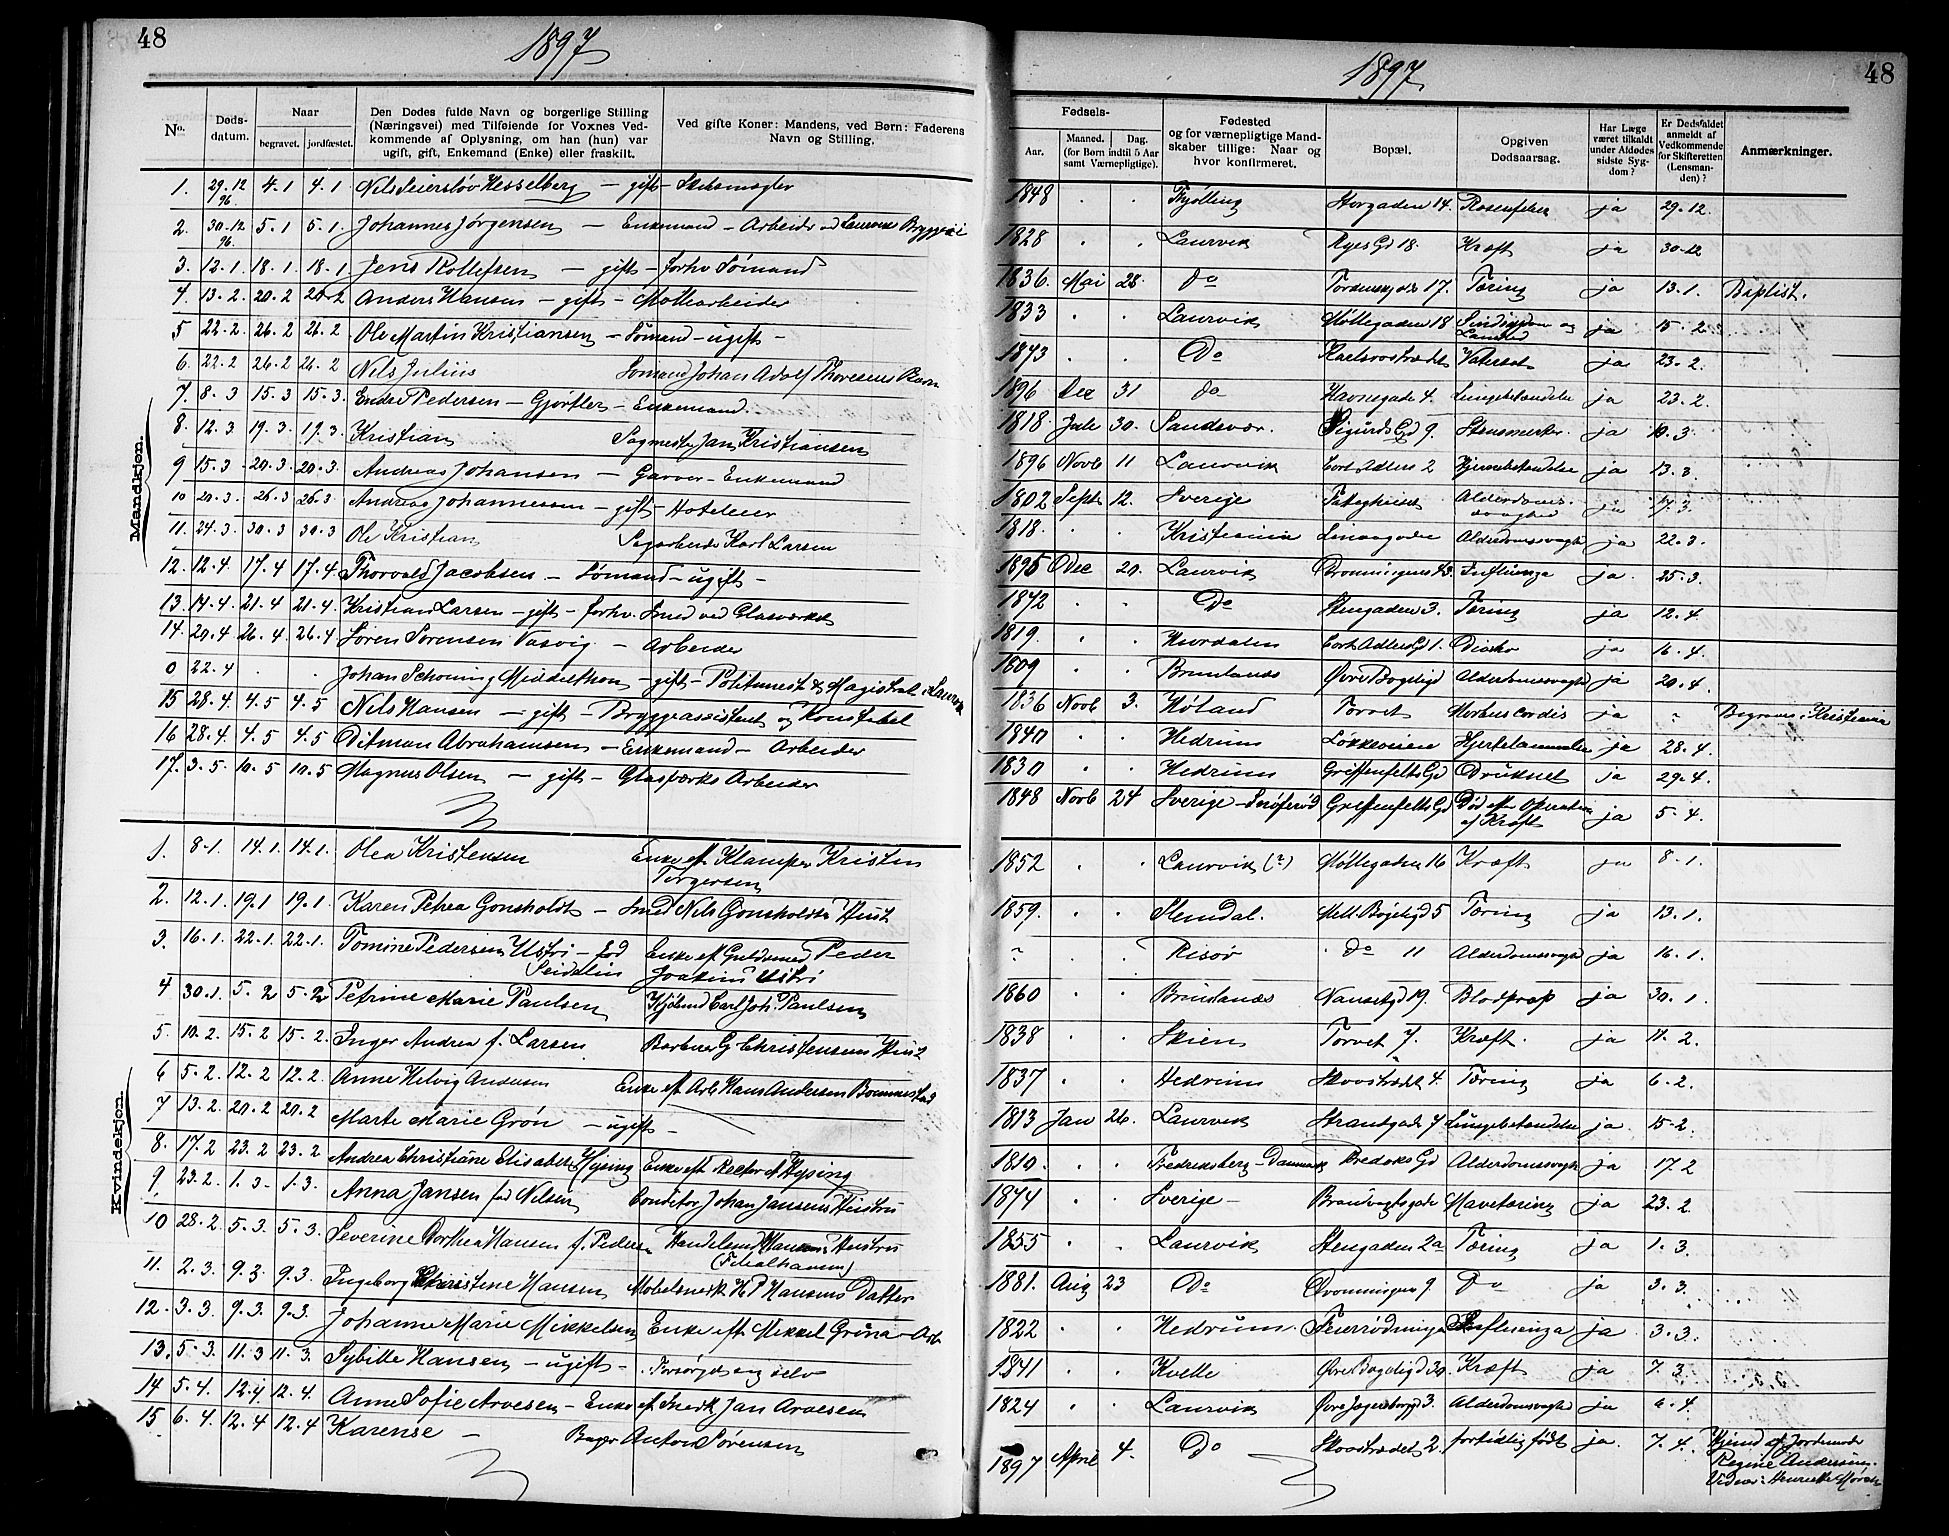 48
1897
No.
Døds-
datum.
Naar
begravet. jordfæstet.
Den Dødes fulde Navn og borgerlige Stilling
(Næringsvei) med Tilføiende for Voxnes Ved-
kommende af Oplysning, om han (hun) var
ugift, gift, Enkemand (Enke) eller fraskilt.
Ved gifte Koner: Mandens, ved Børn: Faderens
Navn og Stilling.
Mandkjøn.
1. 29.12 96. 4.1 4.1 Nils Hesselberg - gift - Skibsmægler
2. 30.12 96. 5.1 5.1 Johannes Jørgensen - Enkemand - Arbeider ved Laurviks Bryggeri
3. 12.1. 18.1. 18.1 Jens Rollefsen - gift - forhv Sømand
4. 13.2. 20.2 20.2 Anders Hansen - gift - Møllearbeider
5 22.2. 26.2 26.2 Ole Martin Kristiansen - Sømand - ugift -
6. 22.2 26.2 26.2 Nils Julius Sømand Johan Adolf Thoresens Barn
7. 8.3 15.3 15.3. Endre Pedersen - Gjørtler - Enkemand.
8. 12.3. 19.3. 19.3. Kristian Sagmester Jan Kristiansen
9 15.3 20.3 20.3. Andreas Johansen - Garver - Enkemand
10 20.3. 26.3 26.3 Andreas Johannessen - gift - Hoteleier
11. 24.3. 30.3 30.3 Ole Kristian Sagarbeider Karl Larsen
12. 12.4. 17.4 17.4. Thorvald Jacobsen - Sømand - ugift -
13. 14.4. 21.4 21.4. Kristian Larsen - gift - forhv. Smed ved Glasværket
14. 20.4 26.4 26.4 Søren Sørensen Vasvig - Arbeider
0 22.4 Johan Schøning Middelthon - gift - Politimest & Magistrat i Laurvik
15 28.4. 4.5 4.5 Nils Hansen - gift - Bryggeassistent og Konstabel
16 28.4. 4.5 4.5 Ditman Abrahamsen - Enkemand - Arbeider
17. 3.5. 10.5 10.5 Magnus Olsen - gift - Glasværks Arbeider
Kvindekjøn.
1. 8.1. 14.1. 14.1. Olea Kristensen Enke eft Klamper Kristen
Torgersen
2. 12.1. 19.1 19.1. Karen Petrea Gonsholdt - Smed Nils Gonsholdts Hust
3. 16.1. 22.1. 22.1. Tomine Pedersen Ustri - fød Enke eft Guldsmed Peder
Seidelin Joakim Ustri
4 30.1. 5.2 5.2 Petrine Marie Paulsen Carl Joh. Paulsen
5. 10.2. 15.2 15.2. Inger Andrea f. Larsen Barberer G. Christensens Hust
6 5.2. 12.2 12.2. Anne Helvig Andersen Enke eft Arb Hans Andersen
7 13.2. 20.2 20.2 Marte Marie Grøn - ugift -
8. 17.2 23.2 23.2 Andrea Christiane Elisabet Hysing Enke eft Rector Hysing
9 23.2. 1.3 1.3. Anna Jansen fød Nilsen Conditor Johan Jansens Hustru
10 28.2. 5.3. 5.3. Severine Dorthea Hansen f. Pedersen Handelsmd Hansens Hustru
11. 2.3. 9.3. 9.3. Ingeborg Christine Hansen Møbelsnedk H P Hansens Datter
12. 3.3. 9.3. 9.3. Johanne Marie Mikkelsen Enke eft Mikkel Gruna - Arb
13. 5.3. 11.3 11.3. Sybille Hansen - ugift - Forsørged sig selv
14 5.4. 12.4 12.4. Anne Sofie Arvesen - Enke eft Snedk Jan Arvesen
15 6.4. 12.4 12.4 Karense - Bager Anton Sørensen
1897
48
Fødsels-
Aar.
Maaned. Dag.
(for Børn indtil 5 Aar
samt Værnepligtige).
Fødested
og for værnepligtige Mand-
skaber tillige: Naar og
hvor konfirmeret.
Bopæl.
Opgiven
Dødsaarsag.
Har Læge
været tilkaldt
under Afdødes
sidste Syg-
dom?
Er Dødsfaldet
anmeldt af
Vedkommende
for Skifteretten
(Lensman-
den)?
Anmærkninger.
1848 Tjølling Storgaden 14. Rosenfeber ja 29.12.
1828 Laurvik Ryes Gd 18. Kræft ja 30.12
1836. Mai 28. Do 17. Tæring ja 13.1. Baptist.
1833 Laurvik Møllegaden 18 ja 15.2.
1873 Do Vatersot ja 23.2.
1896 Dec 31 do Havnegade 4. Lungebetændelse ja 23.2.
1818 Jule 30. Sandsvær. Sigurds Gd 9. ja 10.3.
1896 Novb 11 Laurvik Cort Adlers 2 Hjernebetændelse ja 13.3
1802 Sept 12. Sverige Fattighuset Alderdoms-
svaghed ja 17.3.
1818. Kristiania Alderdomssvagh ja 22.3.
1895 Dec 20. Laurvik Dronningens 43. Influenza ja. 25.3.
1872 Do Stengaden 3. Tæring ja 12.4.
1819. Hurdalen Cort Adlers Gd 1. ja 16.4.
1809 Brunlanæs Øvre Bøgeligd Alderdomssvagh ja 20.4.
1836 Novb 3. Høland Torvet Morbus Cordis ja Begraves i Kristiania
1840 Hedrum Løkkeveien Hjertelammelse ja 28.4.
1830 Hedrum Griffenfelts Gd Druknet ja 29.4.
1848 Novb 24 Sverige Griffenfelts Gd Død efter Operation
af Kræft ja 5.4.
1852 Laurvik (?) Møllegaden 16 Kræft ja 8.1.
1859. Slemdal. Mell. Bøgeligd 5 Tæring ja 13.1.
? Risør do 11 Alderdomssvagh ja 16.1.
1860 Brunlanæs Nansetgd 19. Blodprop ja 30.1.
1838 Skien Torvet 7. Kræft. ja 11.2.
1837 Hedrum Skovstrædet 4. Tæring ja 6.2.
1813 Jan 26. Laurvik Strandgade 7 Lungebetændelse ja. 15.2.
1810. Fredriksberg - Danmark Bredoks Gd Alderdomssvagh ja 17.2
1874 Sverige - Brandvagtsgade Mavetæring ja 23.2
1855 Laurvik Stengaden 2a Tæring ja 1.3.
1881. Aug 23 Do Dronningens 9. do ja 3.3.
1822 Hedrum. Influenza ja 3.3.
1841 Kvelle Øvre Bøgeligd 30. Kræft ja 7.3
1824 Laurvik Øvre Jegersborggd 3. Alderdomssvagh ja 6.4.
1897 April 4. Do Skovstrædet 2. fortidlig født ja. 7.4. Hjemd af Jordemoder
Regine Andersen.